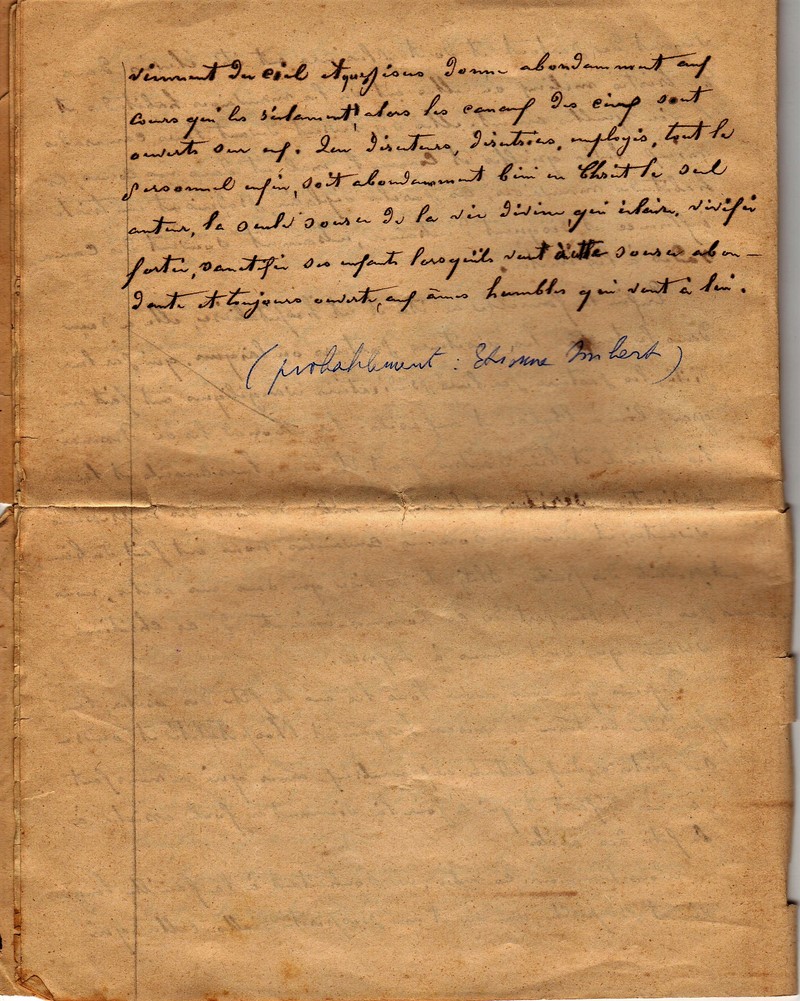 viennent du ciel et que Jésus donne abondamment aux
cœurs qui les réclament, alors les canaux des cieux sont
ouverts sur eux. Que directeurs, directrices, employés, tout le
personnel enfin, soit abondamment béni en Christ le seul
auteur, la seule source de la vie divine, qui éclaire, vivifie
fortifie, sanctifie ses enfants lorsqu'ils vont à cette source abon-
dante et toujours ouverte, aux âmes humbles qui vont à lui.
(probablement : Etienne Imbert)